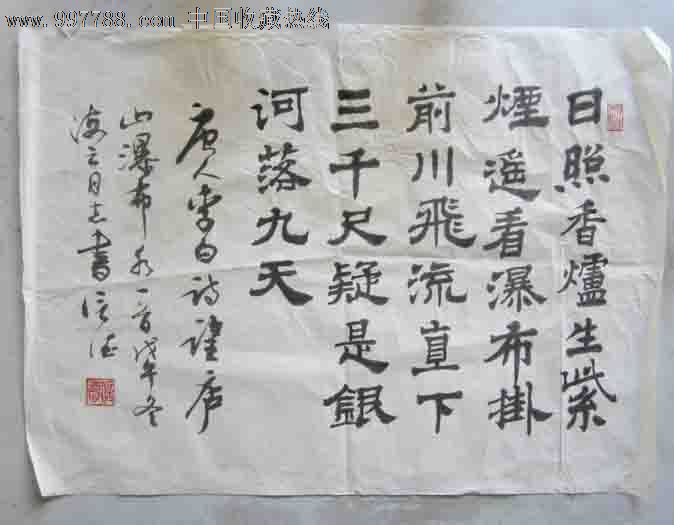 www.997788.com 中国收藏热线
日照香爐生紫
煙遥看瀑布掛
前川飛流直下
三千尺疑是銀
河落九天
唐人李白诗望庐
山瀑布水一首戊午冬
同志書